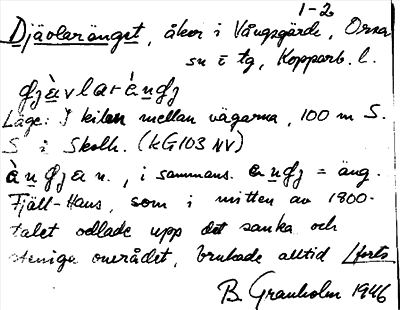 1-2
Djävlaränget, åker i Vångsgärde, Orsa
sn i tg, Kopparb. l.
Läge: I kilen mellan vägarna, 100 m S.
S i Skolh. (KG103 NV)
i sammans. = äng.
Fjäll-Hans, som i mitten av 1800-
talet odlade upp det sanka och
steniga området, brukade alltid /forts
B. Granholm 1946